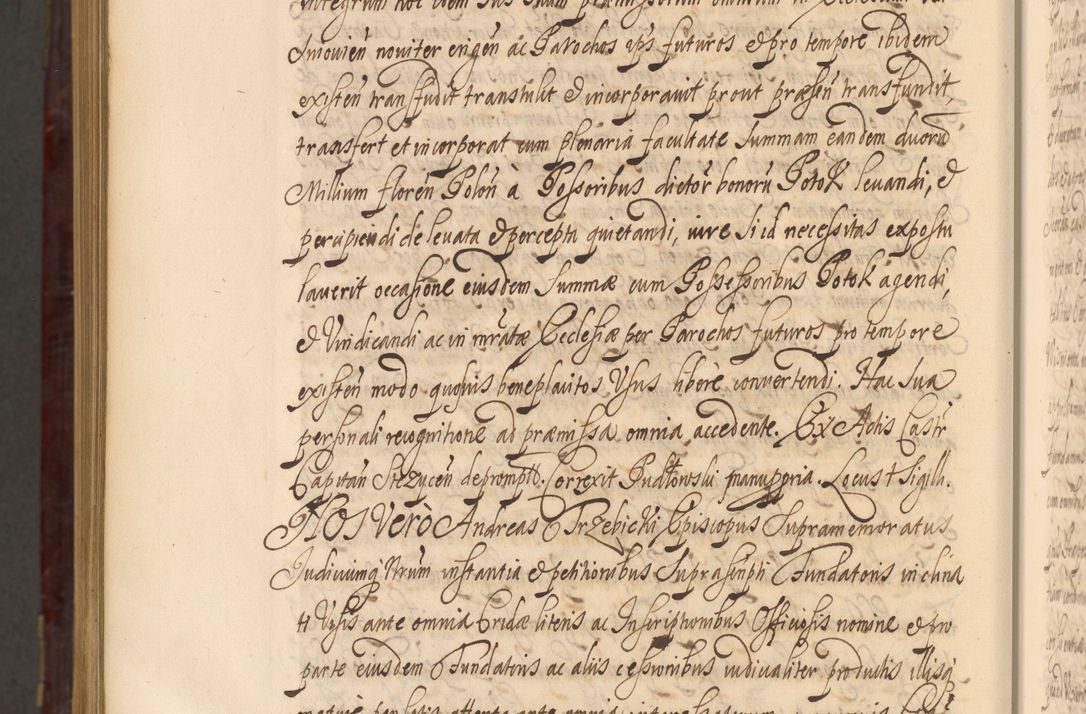 integrum hoc idem Jus suum præmissorum omnium in Ecclesiam
Imovien noviter erigen ac Parochos ips futuros & pro tempore ibidem
existen transfudit transtulit & incorporavit prout præsen transfundit,
transfert et incorporat cum plenaria facultate Summam eandem duorũ
Millium floren Polon à Possoribus dictor bonorũ Potok levandi, &
percipiendi de levata & percepta quietandi, iure si id necessitas expostu
laverit occasione eiusdem Summæ cum Possessoribus Potok agendi,
& Vindicandi ac in mratæ Ecclesiæ per Parochos futuros pro tempore
existen modo quovis beneplacitos Usus libere convertendi. Hac sua
personali recognitione ad præmissa omnia accedente. Ex Actis Castr
Capitan Stezycen deprompt. Correxit Pudłowski manuppria. Locus † Sigilli.
NOS Verò Andreas Trzebicki Episcopus Supramemoratus
Judiciumq Nrum instantia & petitionibus Suprascripti Fundatoris inclina
ti Visis ante omnia Cridæ literis ac Inscriptionibus Officiosis nomine & pro
parte eiusdem Fundatoris ac aliis cessionibus iudicialiter productis illisq
mature perlectis attenta ante omnia